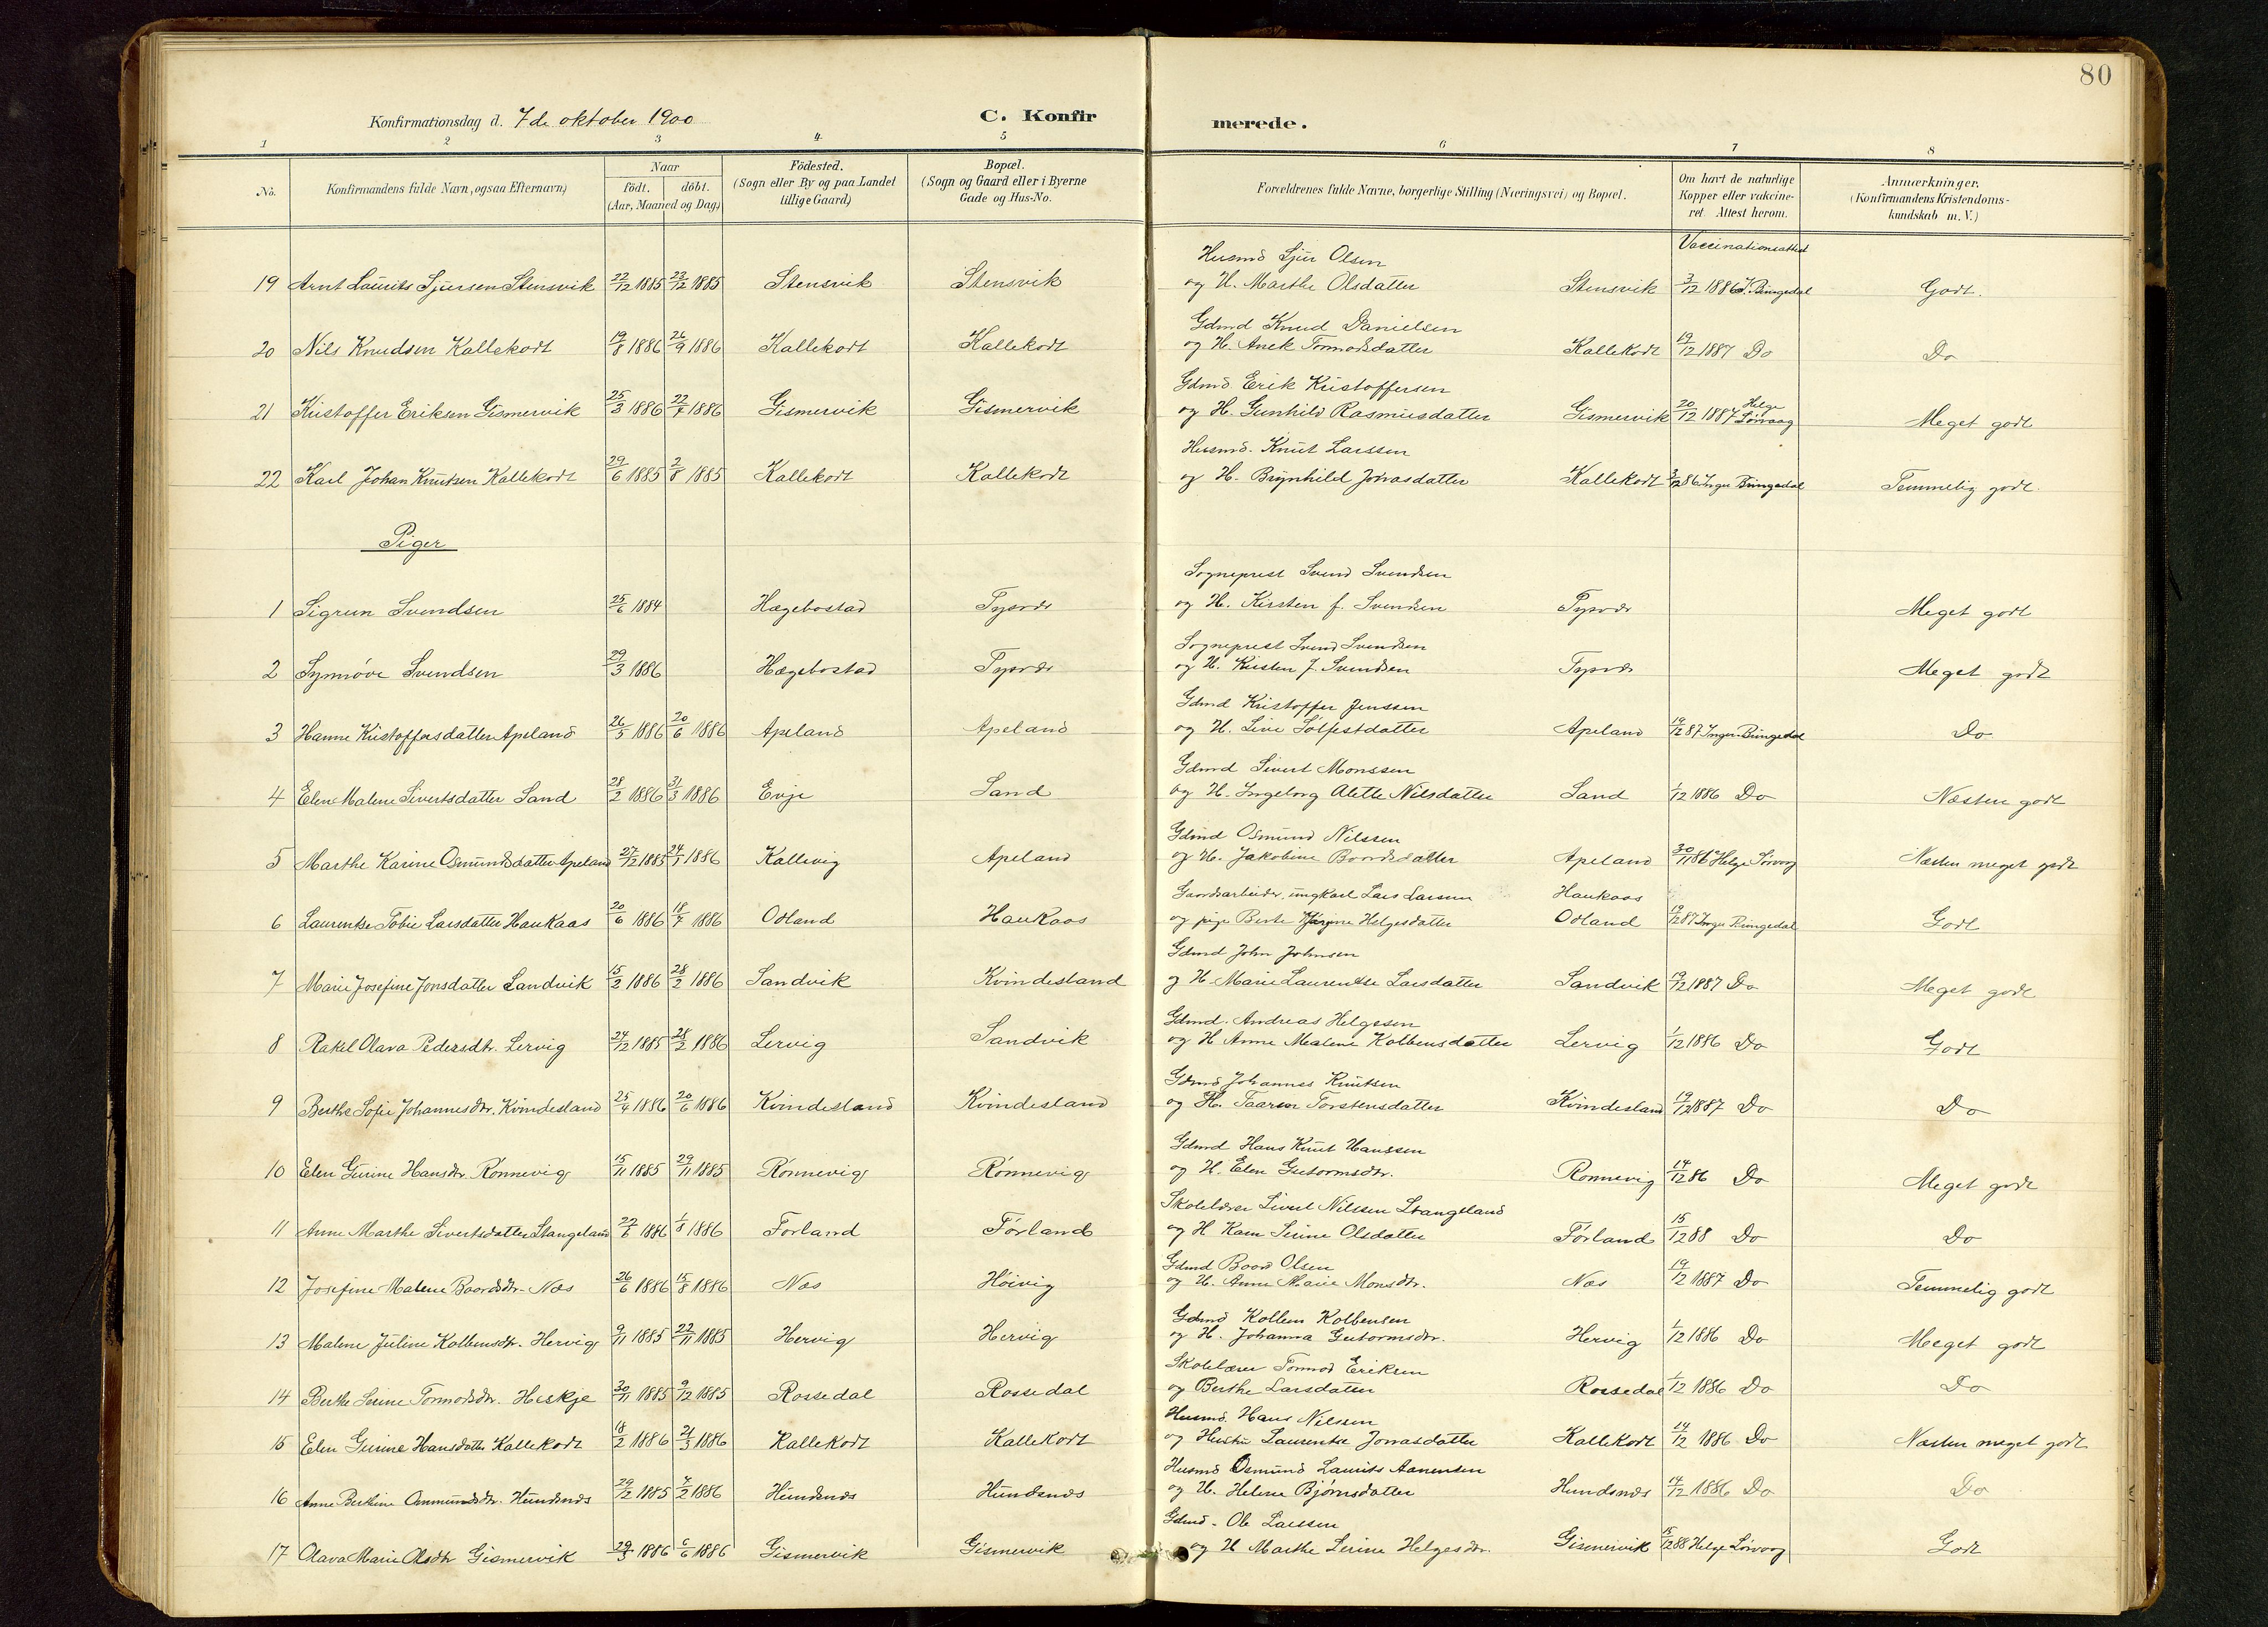 80
Konfirmationsdag d. 7de oktober 1900 C. Konfirmerede.
1 2 3 4 5 6 7 8
No. Konfirmandens fulde Navn, ogsaa Efternavn) Naar födt. döbt. (Aar, Maaned og Dag) Födested. (Sogn eller By og paa Landet tillige Gaard) Bopæl. (Sogn og Gaard eller i Byerne Gade og Hus-No. Forældrenes fulde Navne, borgerlige Stilling (Næringsvei) og Bopæl. Om havt de naturlige Kopper eller vakcineret. Attest herom. Anmærkninger. (Konfirmandens Kristendomskundskab m. V.)
Husmd Sjur Olsen Vaccinationsattest
19 Arnt Laurits Sjursen Stensvik 22/12 1885 23/12 1885 Stensvik Stensvik og H. Marthe Olsdatter Stensvik 3/12 1886 I. Bringedal Godt.
Gdmd Knud Danielsen
20 Nils Knudsen Kallekodt 19/8 1886 26/9 1886 Kallekodt Kallekodt og H. Anek Tormodsdatter Kallekodt 19/12 1887 Do Do
Gdmd Erik Kristoffersen
21 Kristoffer Eriksen Gismervik 25/3 1886 22/4 1886 Gismervik Gismervik og H. Gunhild Rasmusdatter Gismervik 20/12 1887 Helge Sørvaag Meget godt
Husmd. Knut Larssen
22 Karl Johan Knutsen Kallekodt 29/6 1885 2/8 1885 Kallekodt Kallekodt og H. Brynhild Jonasdatter Kallekodt 3/12 86 Inger Bringedal Temmelig godt.
Piger
Sogneprest Svend Svendsen
1 Sigrun Svendsen 25/6 1884 Hægebostad Tysvær og H. Kirsten f. Svendsen Tysvær Meget godt
Sogneprest Svend Svendsen
2 Synnöve Svendsen 29/3 1886 Hægebostad Tysvær og H. Kirsten f. Svendsen Tysvær Meget godt
Gdmd Kristoffer Jenssen
3 Hanne Kristoffersdatter Apeland 26/5 1886 20/6 1886 Apeland Apeland og H. Live Solfestdatter Apeland 19/12 87 Inger Bringedal Do
Gdmd Sivert Monssen
4 Elen Malene Sivertsdatter Sand 28/2 1886 31/3 1886 Evje Sand og H. Ingeborg Alette Nilsdatter Sand 1/12 1886 Do Næsten godt
Gdmd Osmund Nilssen
5 Marthe Karine Osmundsdatter Apeland 27/12 1885 24/1 1886 Kallevig Apeland og H. Jakobine Baardsdatter Apeland 30/11 86 Helge Sørvaag Næsten meget godt
Gaardsarbeider, ungkarl Lars Larssen Haukaas
6 Laurentse Tobie Larsdatter Haukaas 20/6 1886 18/7 1886 Odland Haukaas og pige Berte Helgesdatter Odland 19/12 87 Inger Bringedal Godt
Gdmd John Johnsen
7 Marie Josefine Jonsdatter Sandvik 15/2 1886 28/2 1886 Sandvik Kvindesland og H Marie Laurentse Larsdatter Sandvik 19/12 1887 Do Meget godt
Gdmd. Andreas Helgesen
8 Rakel Olava Pedersdtr. Lervig 24/12 1885 28/2 1886 Lervig Sandvik og H Anne Malene Kolbensdatter Lervig 1/12 1886 Do Godt
Gdmd Johannes Knutsen
9 Berthe Sofie Johannesdtr. Kvindesland 25/4 1886 20/6 1886 Kvindesland Kvindesland og H. Taaren Torstensdatter Kvindesland 19/12 1887 Do Do
Gdmd Hans Knut Hanssen
10 Elen Gurine Hansdtr. Rønnevig 15/11 1885 29/11 1885 Rønnevig Rønnevig og H. Elen Gutormsdtr. Rønnevig 14/12 86 Do Meget godt
Skolelærer Sivert Nilssen Stangeland
11 Anne Marthe Sivertsdatter Stangeland 1886 1/8 1886 Førland Førland og H Karn Serine Olsdatter Førland 15/12 88 Do Do
Gdmd Baard Olsen
12 Josefine Malene Baardsdtr. Næs 26/6 1886 15/8 1886 Næs Höivig og H. Anne Marie Monsdtr. Næs 19/12 1887 Do Temmelig godt
Gdmd Kolben Kolbensen
13 Malene Juline Kolbensdtr. Hervig 9/11 1885 22/11 1885 Hervig Hervig og H. Johanna Gutormsdtr. Hervig 1/12 1886 Do Meget godt
Skolelærer Tormod Eriksen
14 Berthe Serine Tormodsdtr. Heskje 30/11 1885 9/12 1885 Rossedal Rossedal og Berthe Larsdatter Rossedal 1/12 1886 Do Do
Husmd. Hans Nilssen
15 Elen Gurine Hansdatter Kallekodt 18/2 1886 21/3 1886 Kallekodt Kallekodt og Hustru Laurentse Jonasdatter Kallekodt 14/12 1886 Do Næsten meget godt
Husmd Osmund Laurits Aanensen
16 Anne Berthine Osmundsdtr. Hundsnæs 29/12 1885 7/2 1886 Hundsnæs Hundsnæs og H. Helene Bjørnsdatter Hundsnæs 14/12 1886 Do Do
Gdmd. Ole Larssen
17 Olava Marie Olsdtr Gismervik 29/3 1886 6/6 1886 Gismervik Gismervik og H Marthe Serine Helgesdtr. Gismervik 15/12 88 Helge Sørvaag Godt